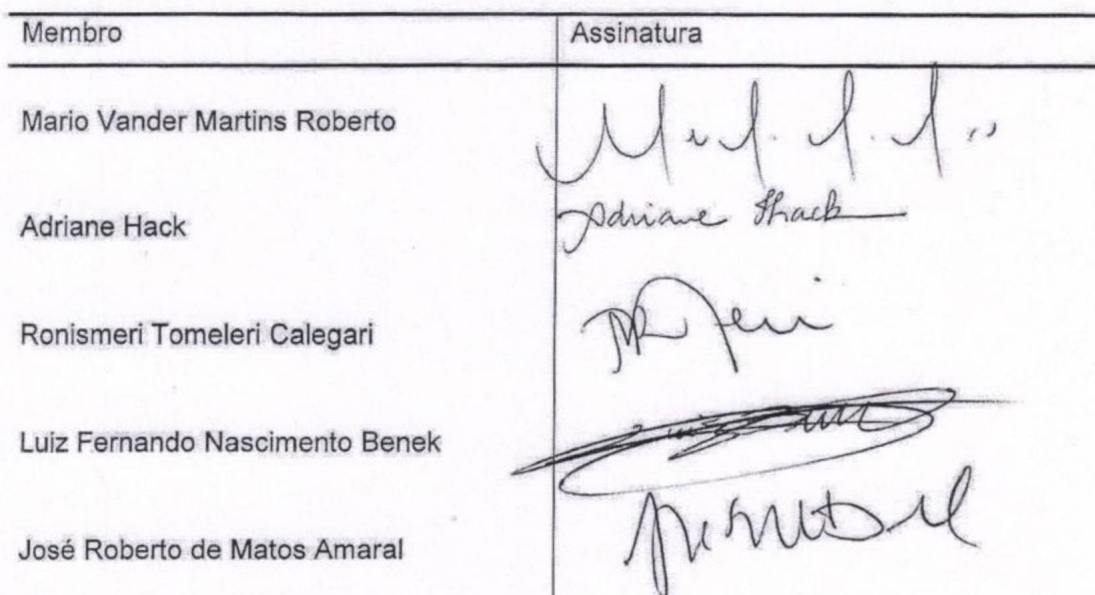 Membro Assinatura
Mario Vander Martins Roberto
Adriane Hack Adriane Hack
Ronismeri Tomeleri Calegari
Luiz Fernando Nascimento Benek
José Roberto de Matos Amaral